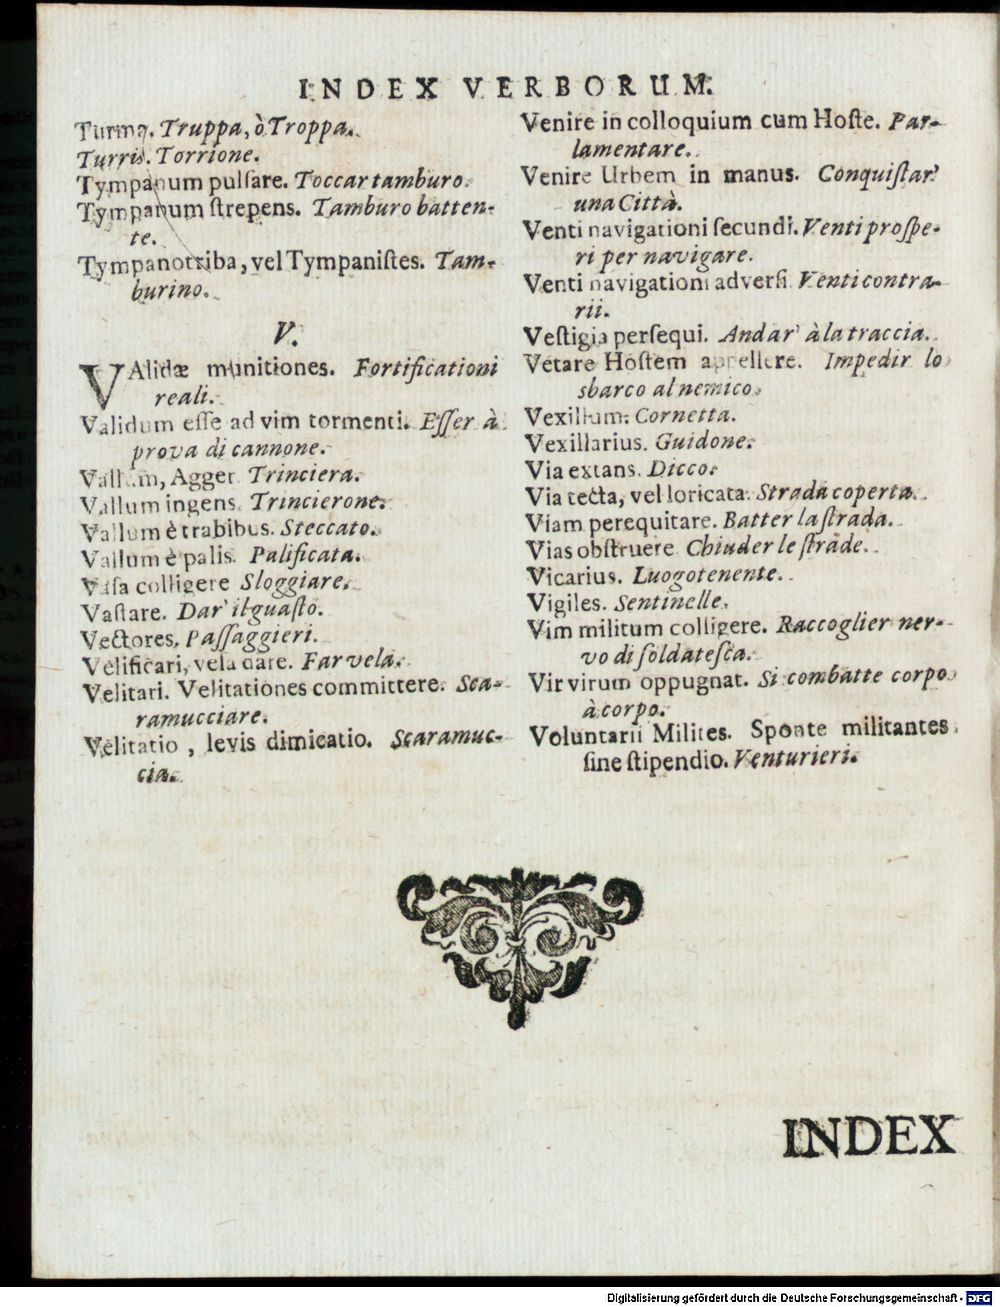 INDEX VERBORUM.
Turma. Truppa, ò Troppa.
Turris. Torrione.
Tympanum pulſare. Toccar tamburo.
Tympanum ſtrepens. Tamburo batten-
te.
Tympanotriba, vel Tympaniſtes. Tam-
burino.
V.
VAlidæ munitiones. Fortificationi
reali.
Validum eſſe ad vim tormenti. Eſſer à
prova di cannone.
Vallum, Agger Trinciera.
Vallum ingens. Trincierone.
Vallum è trabibus. Steccato.
Vallum è palis. Palificata.
Vaſa colligere Sloggiare.
Vaſtare. Dar' il guaſto.
Vectores. Paſſaggieri.
Velificari, vela dare. Far vela.
Velitari. Velitationes committere. Sca-
ramucciare.
Velitatio, levis dimicatio. Scaramuc-
cia.
Venire in colloquium cum Hoſte. Par-
lamentare.
Venire Urbem in manus. Conquiſtar'
una Città.
Venti navigationi ſecundi. Venti proſpe-
ri per navigare.
Venti navigationi adverſi Venti contra-
rii.
Veſtigia perſequi. Andar' à la traccia.
Vetare Hoſtem appellere. Impedir lo
sbarco al nemico.
Vexillum. Cornetta.
Vexillarius. Guidone.
Via extans. Dicco.
Via tecta, vel loricata. Strada coperta.
Viam perequitare. Batter la ſtrada.
Vias obſtruere Chiuder le ſtrade.
Vicarius. Luogotenente.
Vigiles. Sentinelle.
Vim militum colligere. Raccoglier ner-
vo di ſoldateſca.
Vir virum oppugnat. Si combatte corpo
à corpo.
Voluntarii Milites. Sponte militantes
ſine ſtipendio. Venturieri.
INDEX
Digitalisierung gefördert durch die Deutsche Forschungsgemeinschaft - DFG